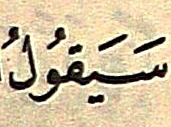 سَيَقُولُ